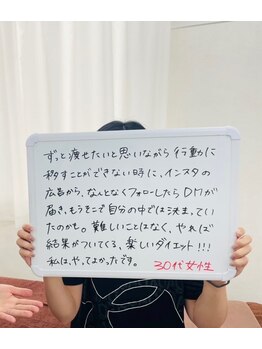 ずっと痩せたいと思いながら行動に
移すことができない時に、インスタの
広告から、なんとなくフォローしたらDMが
届き、もうそこで自分の中では決まってい
たのかも。難しいことはなく、やれば
結果がついてくる、楽しいダイエット!!!
私は、やってよかったです。 30代女性